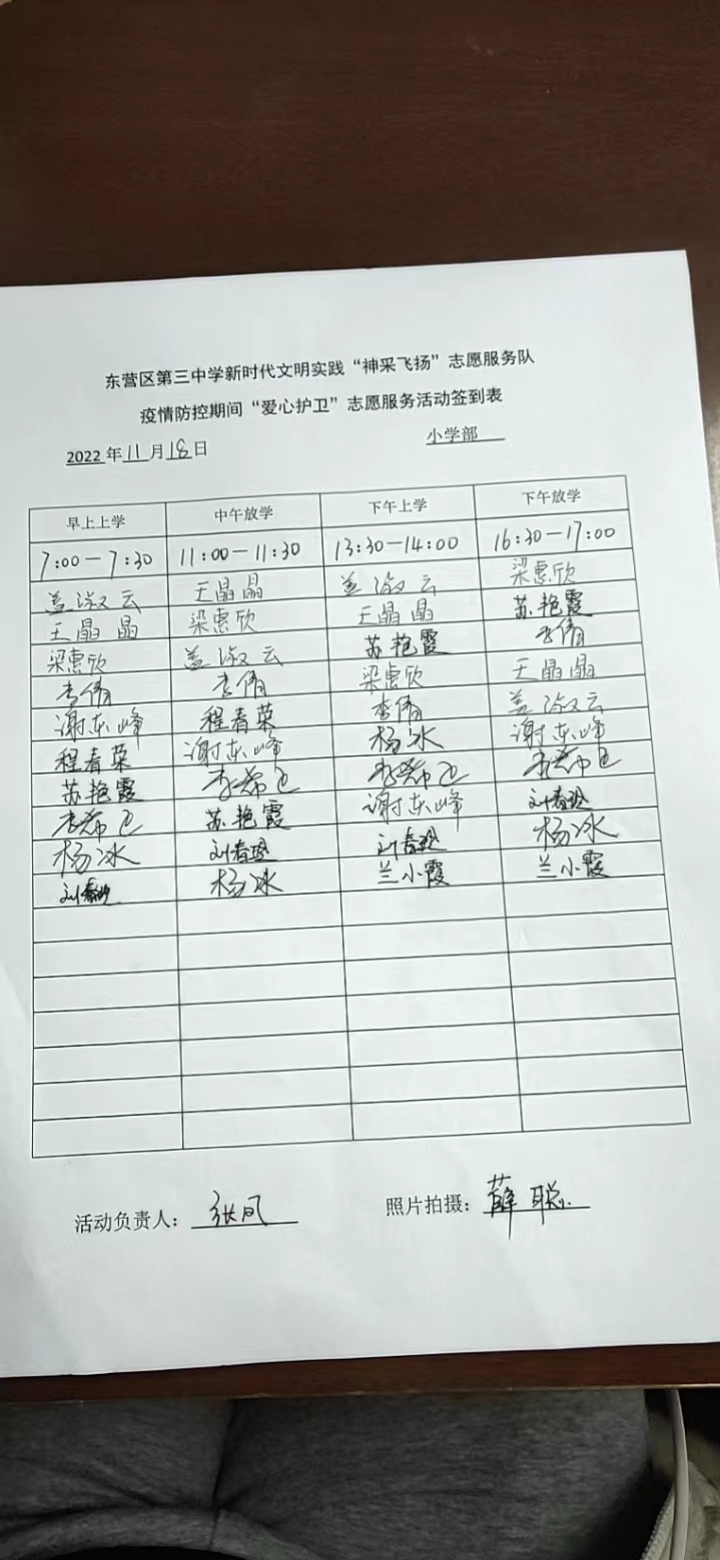 东营区第三中学新时代文明实践“神采飞扬”志愿服务队
疫情防控期间“爱心护卫”志愿服务活动签到表
2022年11月18日 小学部
早上上学 中午放学 下午上学 下午放学
7:00-7:30 11:00-11:30 13:30-14:00 16:30-17:00
盖淑云 王晶晶 盖淑云 梁惠欣
王晶晶 梁惠欣 王晶晶 苏艳霞
梁惠欣 盖淑云 苏艳霞 李倩
李倩 李倩 梁惠欣 王晶晶
谢东峰 程春荣 李倩 盖淑云
程春荣 谢东峰 杨冰 谢东峰
苏艳霞 李希 李希 李希
李希 苏艳霞 谢东峰 刘春
杨冰 刘春 刘春 杨冰
刘春 杨冰 兰小霞 兰小霞
活动负责人：张凤 照片拍摄：薛聪